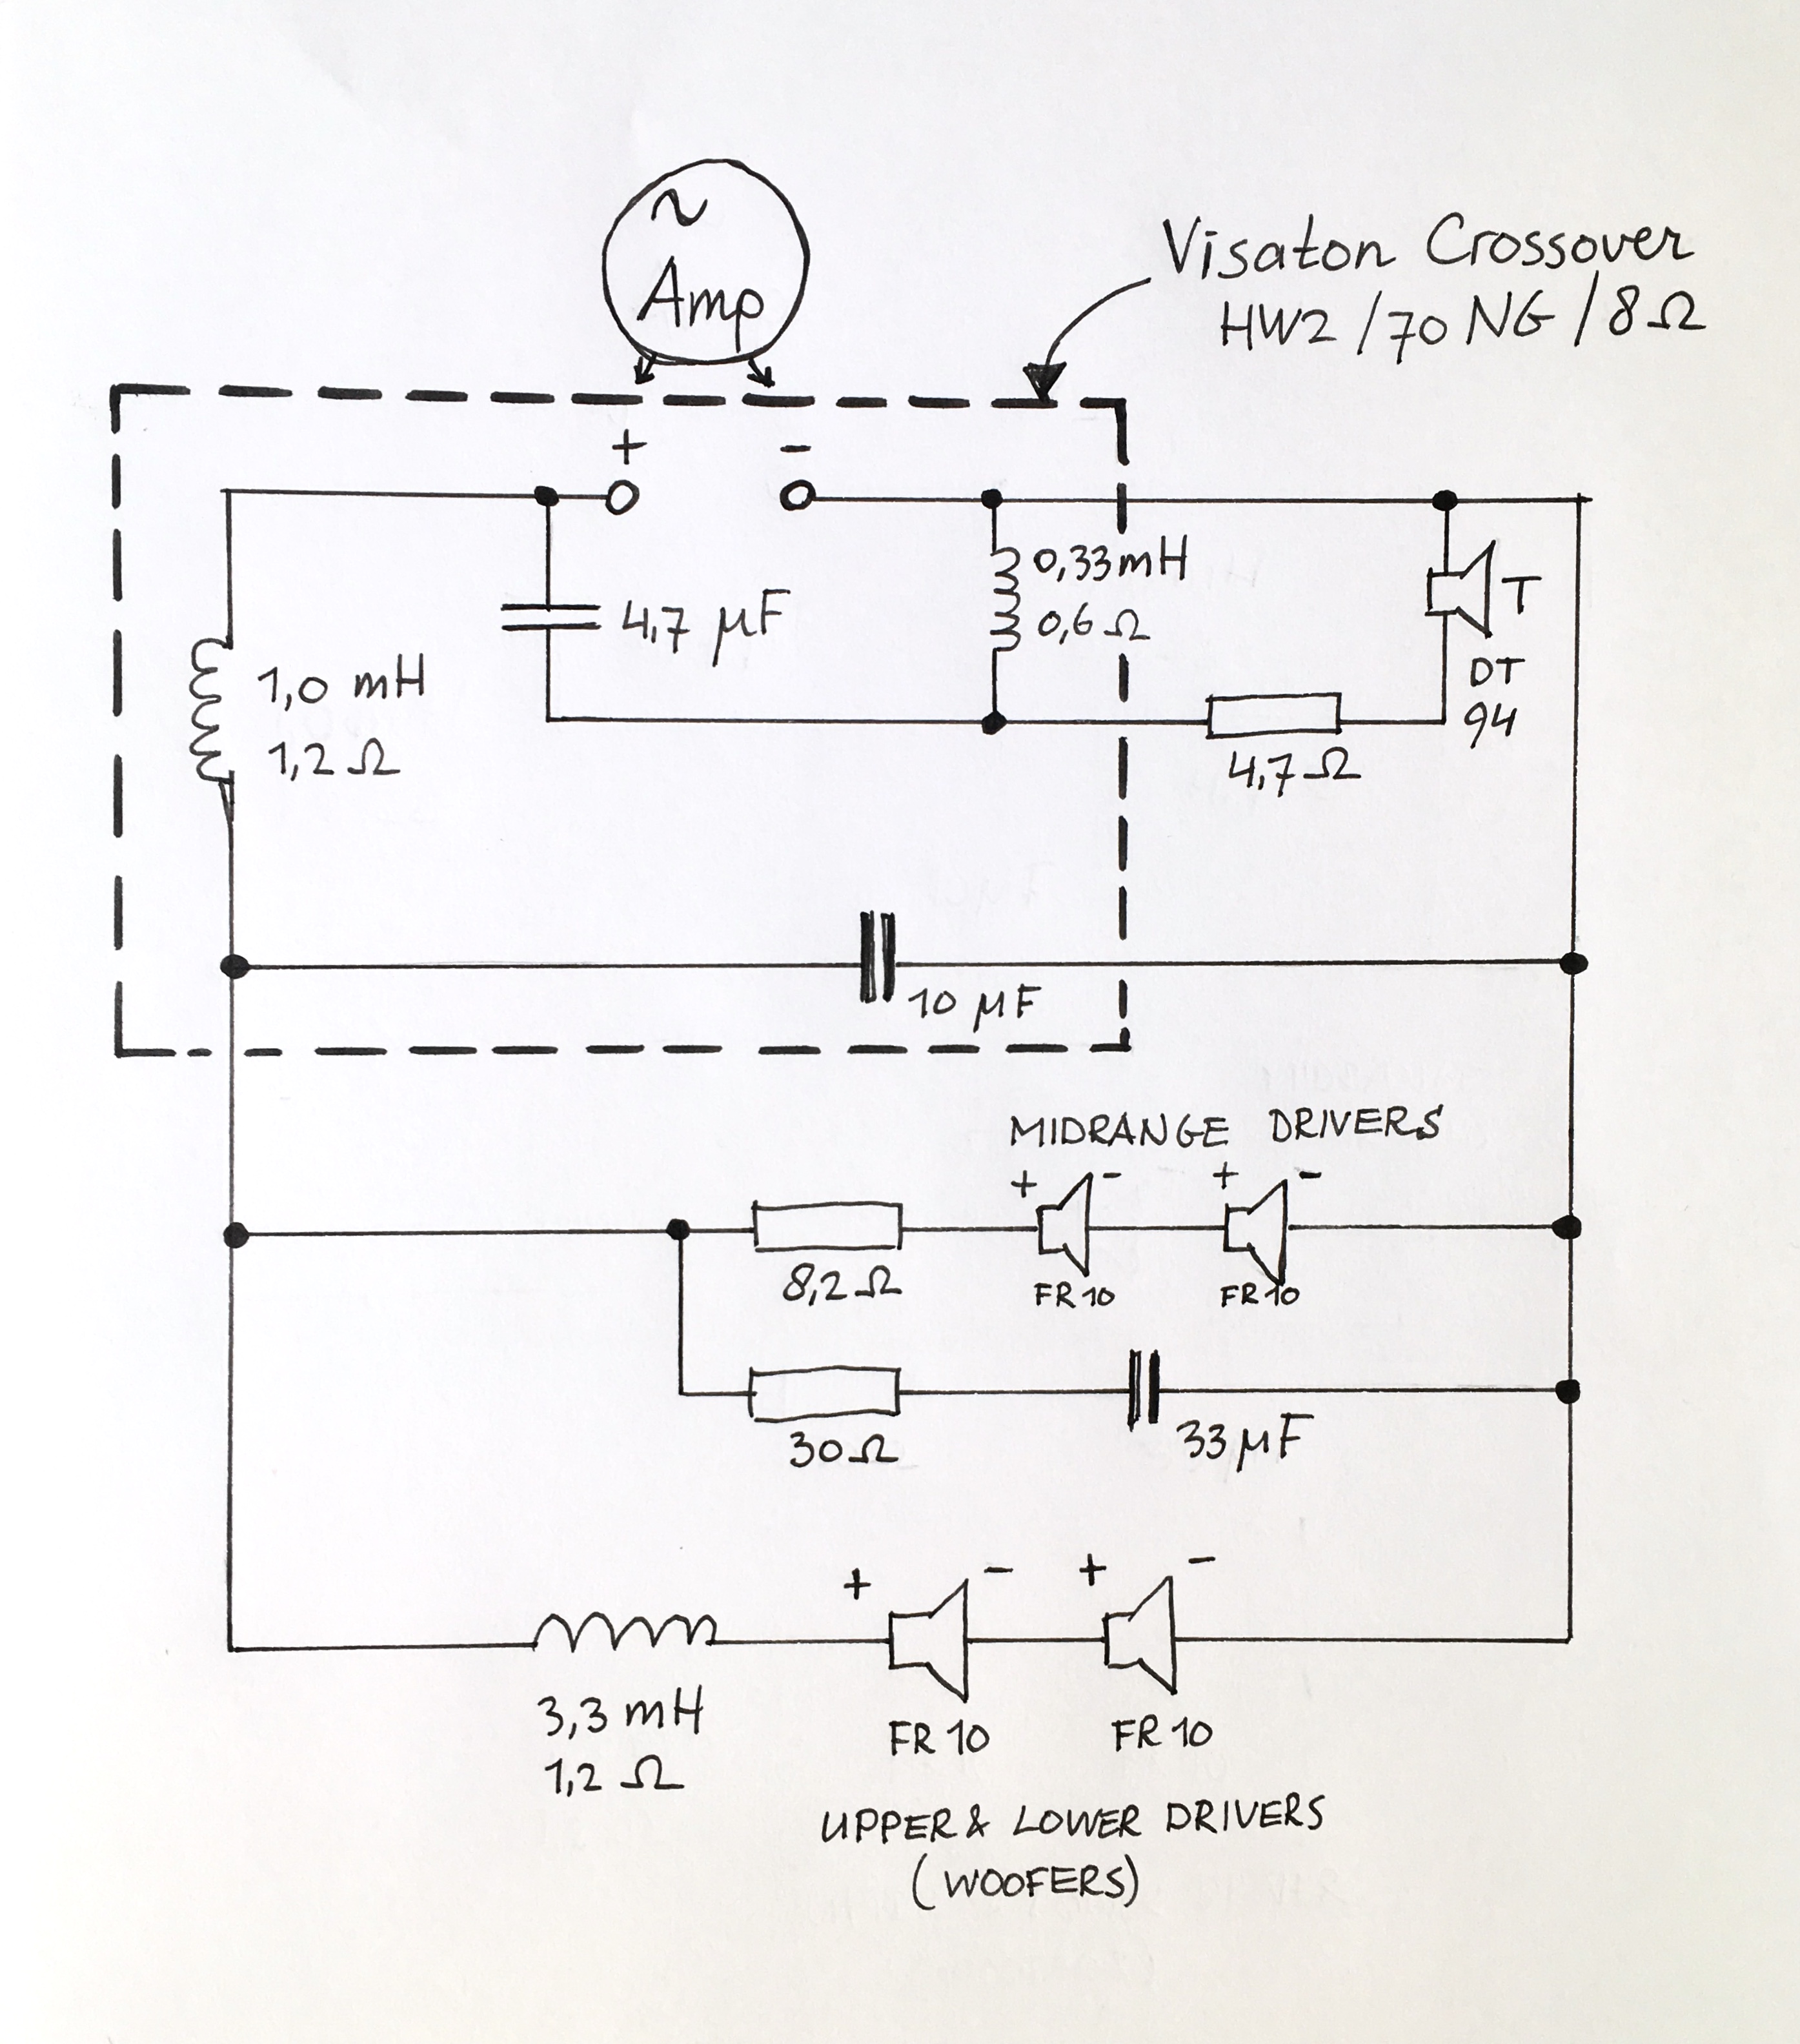 ~
Amp
Visaton Crossover
HW2/70 NG/8Ω
+ -
0,33mH
0,6Ω
4,7 µF
T
DT
94
1,0 mH
1,2Ω
4,7Ω
10 µF
MIDRANGE DRIVERS
+ - + -
8,2Ω
FR10 FR10
30Ω
33µF
+ - + -
3,3 mH
1,2 Ω
FR10 FR10
UPPER & LOWER DRIVERS
(WOOFERS)